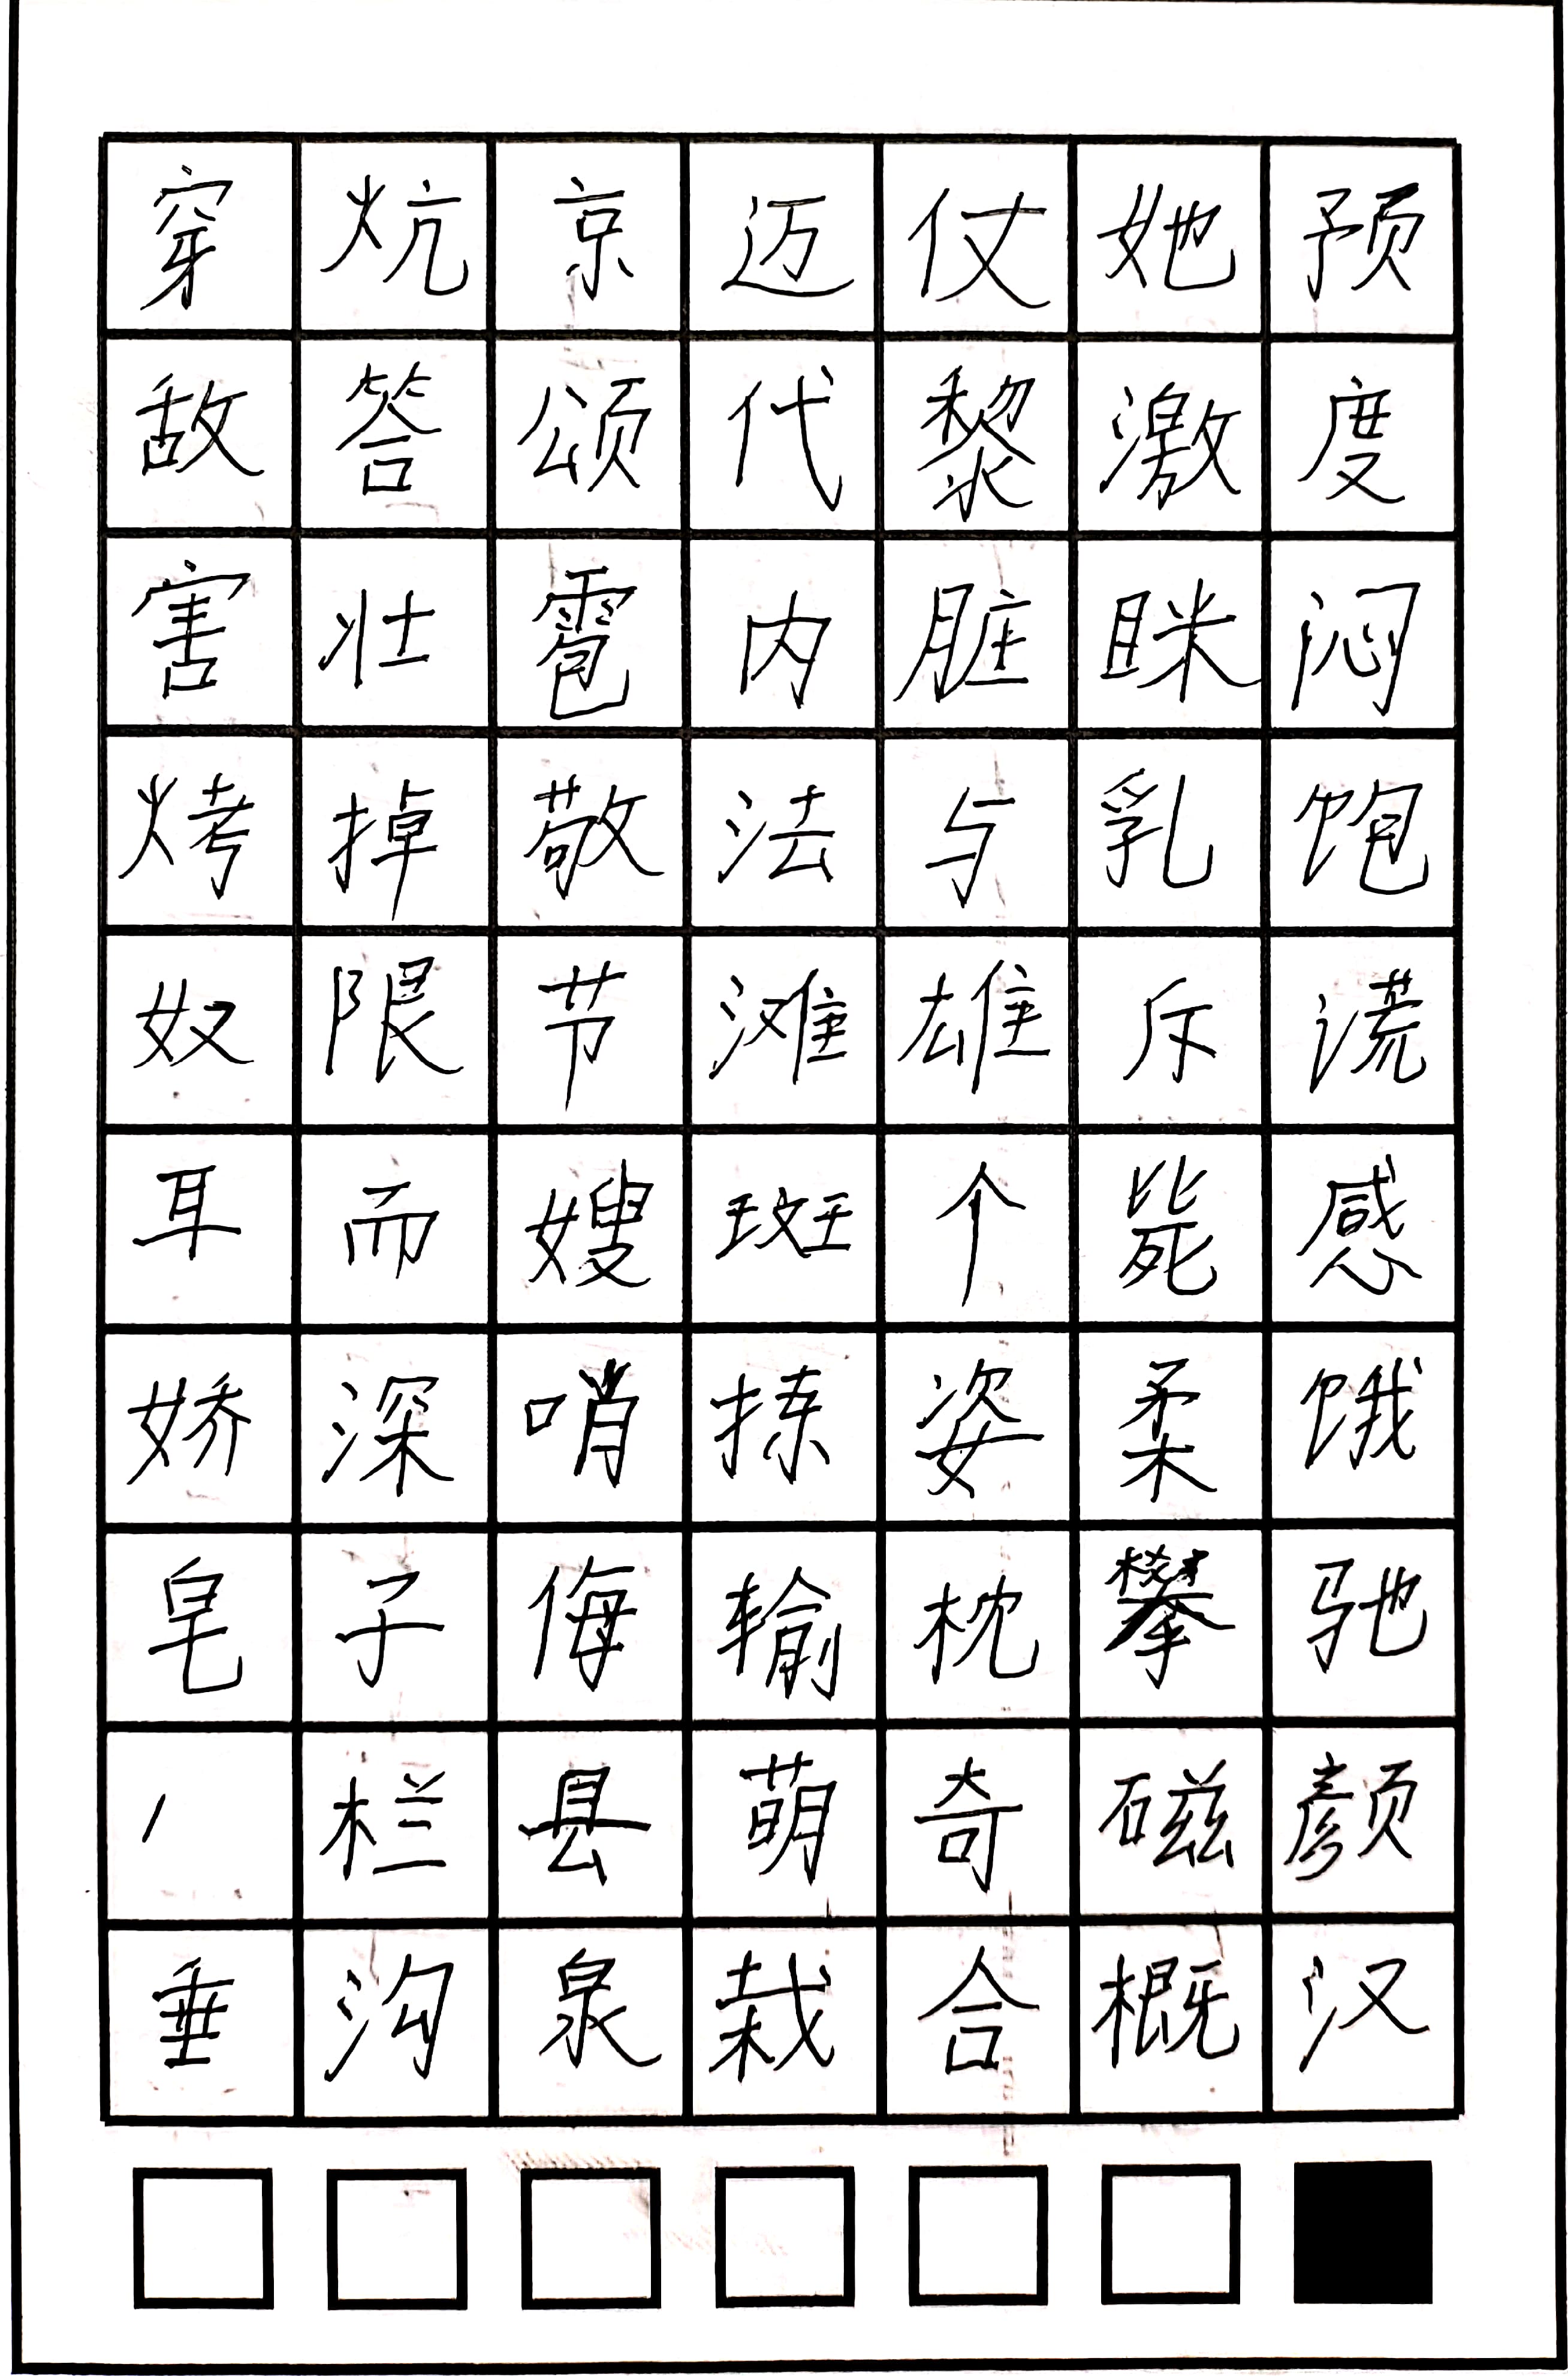 穿炕京迈仗她预
敌答颂代黎激度
害壮雹内脏眯闷
烤掉敬法与乳饱
奴限节滩雄斥谎
耳而嫂斑个毙感
娇深哨拣姿柔饿
皂子侮输枕攀驰
栏县萌奇磁颜
垂沟泉栽合概汉